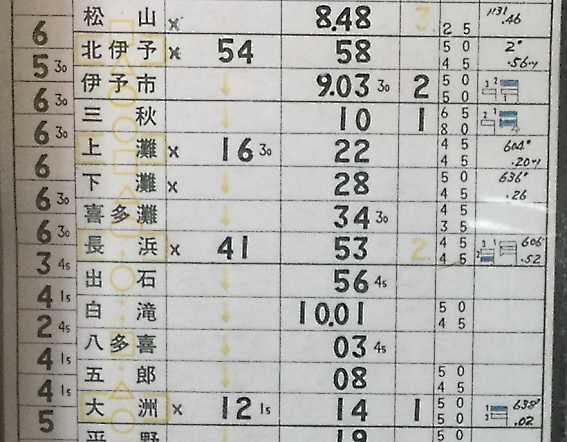 松 山 × 8.48 3 2 5 1131 .46
6
北伊予 × 54 58 5 0 4 5 2° .56
5 30
伊予市 ↓ 9.03 30 2 5 0 5 0 3 1 2 1
6 30
三 秋 ↓ 10 1 6 5 8 0 3 1 2
6 30
上 灘 × 16 30 22 4 5 4 5 604° .20
6
下 灘 × ↓ 28 5 0 4 5 636° .26
6 30
喜多灘 ↓ 34 30 4 5 3 5
6 30
長 浜 × 41 53 2 4 5 4 5 3 1 2 606 .52
3 45
出 石 ↓ 56 45
4 15
白 滝 ↓ 10.01 5 0 4 5
2 45
八多喜 ↓ 03 45
4 15
五 郎 ↓ 08 5 0 4 5
4 15
大 洲 × 12 15 14 1 5 0 5 0 1 2 638° .02
5
平 野 ↓ 19 5 0